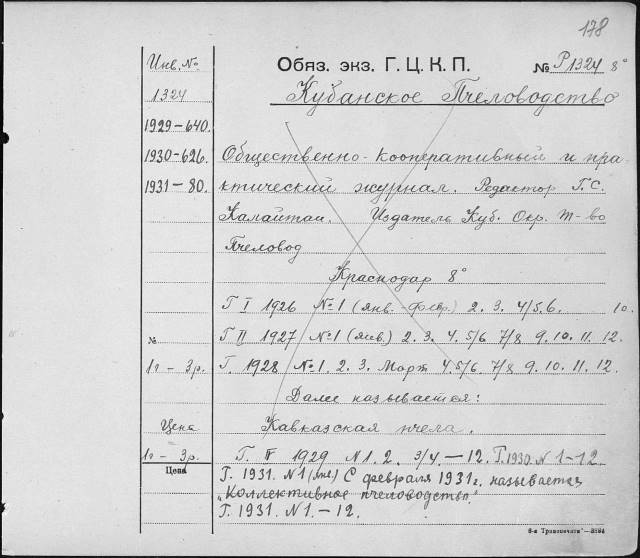 178
Инв. №
1324
1929-640.
1930-626.
1931-80.
№
1г - 3р.
Цена
1г - 3р.
Цена
Обяз. экз. Г. Ц. К. П. № Р1324 8°
Кубанское Пчеловодство
Общественно-кооперативный и пра-
ктический журнал. Редактор Г. С.
Калайтан. Издатель Куб. Окр. Т-во
Пчеловод
Краснодар 8°
Г I 1926 №1 (янв.-февр.) 2. 3. 4/5. 6. 10.
Г II 1927 №1 (янв.) 2. 3. 4. 5/6 7/8 9. 10. 11. 12.
Г. 1928 №1. 2. 3. Март 4. 5/6. 7/8 9. 10. 11. 12.
Далее называется:
Кавказская пчела.
Г. IV 1929 N 1. 2. 3/4. - 12. Г. 1930. N 1-12.
Г. 1931. N1 (янв.) С февраля 1931г. называется
„Коллективное пчеловодство".
Г. 1931. N1. - 12.